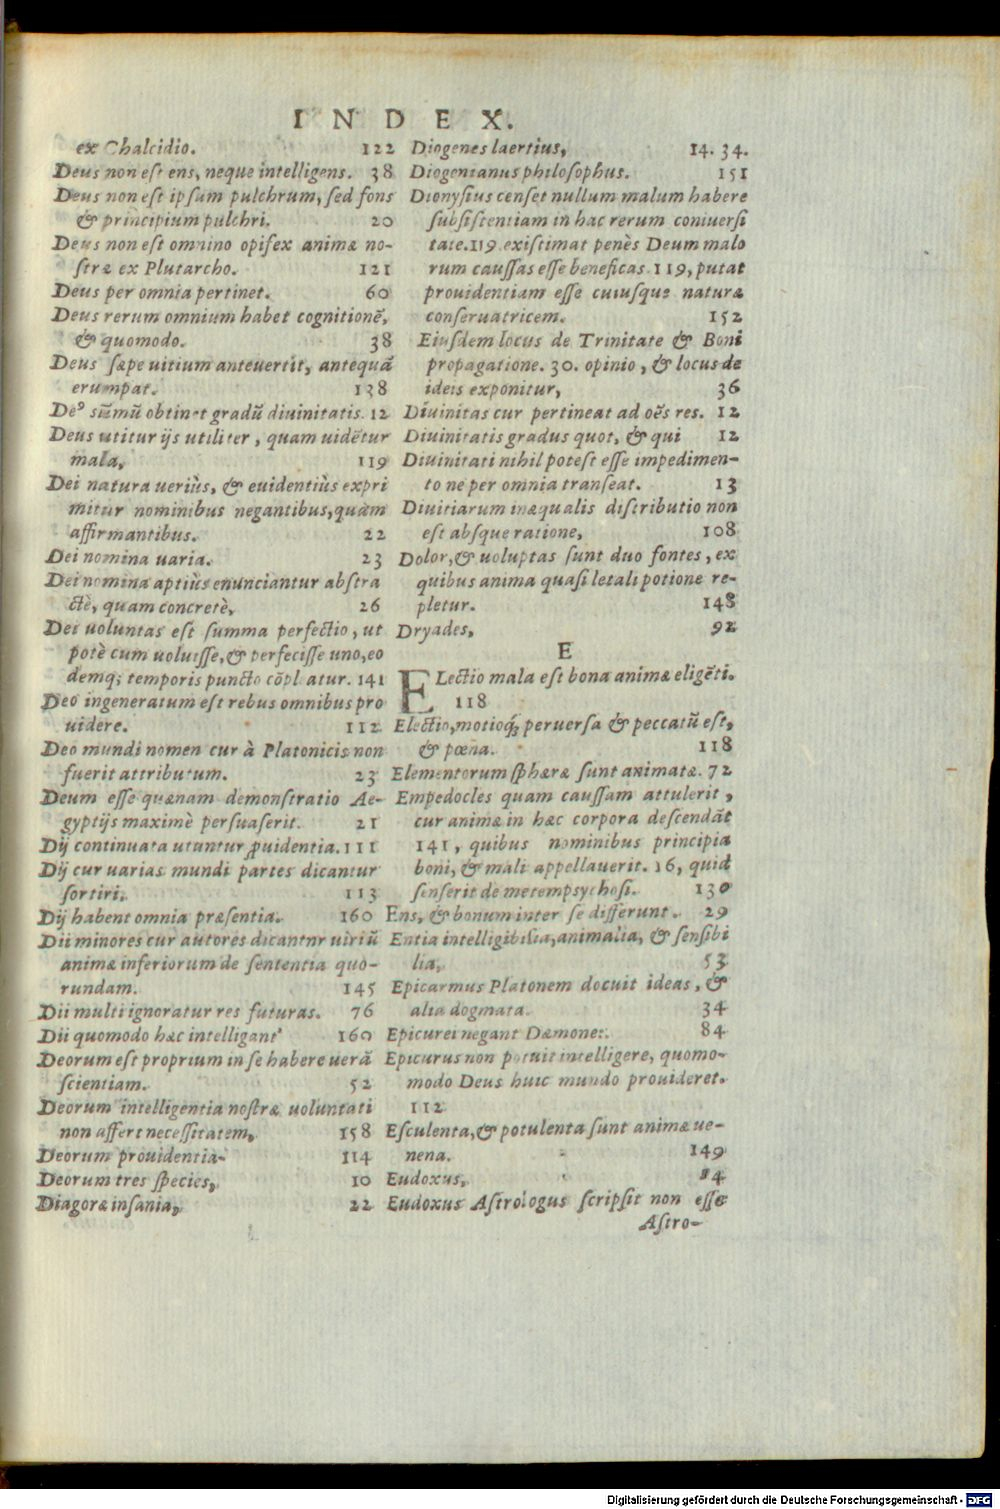 INDEX.
ex Chalcidio. 122
Deus non est ens, neque intelligens. 38
Deus non est ipsum pulchrum, sed fons
& principium pulchri. 20
Deus non est omnino opifex animæ no-
stræ ex Plutarcho. 121
Deus per omnia pertinet. 60
Deus rerum omnium habet cognitionē,
& quomodo. 38
Deus sæpe uitium anteuertit, antequā
erumpat. 138
Deꝰ sūmū obtinet gradū diuinitatis. 12
Deus utitur ijs utiliter, quam uidētur
mala, 119
Dei natura ueriùs, & euidentiùs expri
mitur nominibus negantibus, quàm
affirmantibus. 22
Dei nomina uaria. 23
Dei nomina aptiùs enunciantur abstra
ctè, quam concretè, 26
Dei uoluntas est summa perfectio, ut
potè cum uoluisse, & perfecisse uno, eo
demq; temporis puncto cōplatur. 141
Deo ingeneratum est rebus omnibus pro
uidere. 112
Deo mundi nomen cur à Platonicis non
fuerit attributum. 23
Deum esse quænam demonstratio Ae-
gyptijs maximè persuaserit. 21
Dij continuata utuntur ꝓuidentia. 111
Dij cur uarias mundi partes dicantur
sortiri. 113
Dij habent omnia præsentia. 160
Dii minores cur autores dicantnr uiriū
animæ inferiorum de sententia quo-
rundam. 145
Dii multi ignoratur res futuras. 76
Dii quomodo hæc intelligantꝰ 160
Deorum est proprium in se habere uerā
scientiam. 52
Deorum intelligentia nostræ uoluntati
non affert necessitatem, 158
Deorum prouidentia. 114
Deorum tres species, 10
Diagoræ insania, 22
Diogenes laertius, 14. 34.
Diogenianus philosophus. 151
Dionysius censet nullum malum habere
subsistentiam in hac rerum coniuersi
tate. 119. existimat penès Deum malo
rum caussas esse beneficas 119, putat
prouidentiam esse cuiusque naturæ
conseruatricem. 152
Eiusdem locus de Trinitate & Boni
propagatione. 30. opinio, & locus de
ideis exponitur, 36
Diuinitas cur pertineat ad oēs res. 12
Diuinitatis gradus quot, & qui 12
Diuinitati nihil potest esse impedimen-
to ne per omnia transeat. 13
Diuitiarum inæqualis distributio non
est absque ratione, 108
Dolor, & uoluptas sunt duo fontes, ex
quibus anima quasi letali potione re-
pletur. 148
Dryades, 92
E
ELectio mala est bona animæ eligēti.
118
Electio, motioq́; peruersa & peccatū est,
& pœna. 118
Elementorum sphæræ sunt animatæ. 72
Empedocles quam caussam attulerit,
cur animæ in hæc corpora descendāt
141, quibus nominibus principia
boni, & mali appellauerit. 16, quid
senserit de metempsychosi. 130
Ens, & bonum inter se differunt. 29
Entia intelligibilia, animalia, & sensibi
lia, 53
Epicarmus Platonem docuit ideas, &
alia dogmata. 34
Epicurei negant Dæmones. 84
Epicurus non potuit intelligere, quomo-
modo Deus huic mundo prouideret.
112
Esculenta, & potulenta sunt animæ ue-
nena. 149
Eudoxus, 14
Eudoxus Astrologus scripsit non esse
Astro-
Digitalisierung gefördert durch die Deutsche Forschungsgemeinschaft - DFG